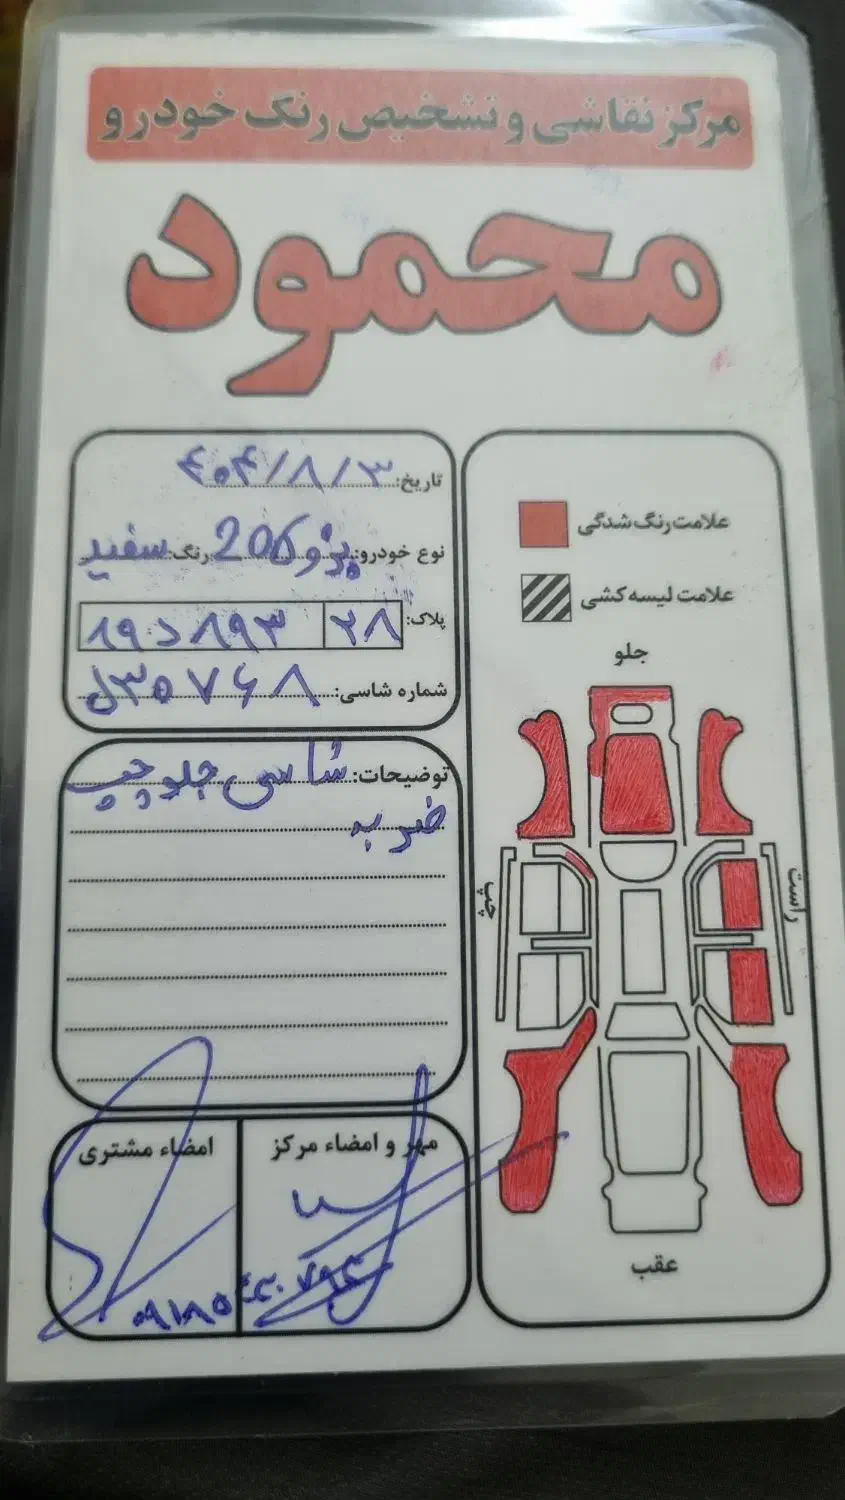 مرکز نقاشی و تشخیص رنگ خودرو
محمود
تاریخ: ۴۰۴/۸/۳
نوع خودرو: پژو 206 رنگ: سفید
پلاک: ۲۸ ۸۹۳ د ۱۹
شماره شاسی:
توضیحات: شاسی جلو چپ
ضربه
مهر و امضاء مرکز
امضاء مشتری
علامت رنگ شدگی
علامت لیسه کشی
جلو
راست
چپ
عقب